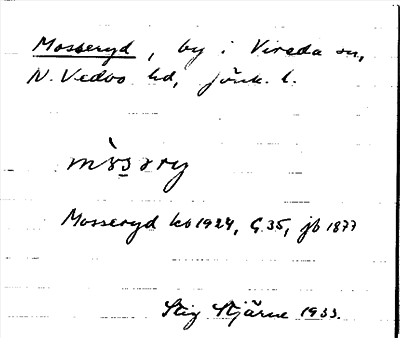 Mosseryd, by i Vireda sn,
N. Vedbo hd, Jönk. l.
Mosseryd kb 1924, G. 35, jb 1877
Stig Stjärne 1933.